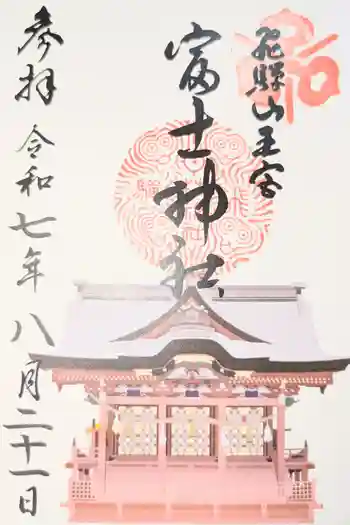 飛騨山王宮
富士神社
参拝
令和七年八月二十一日